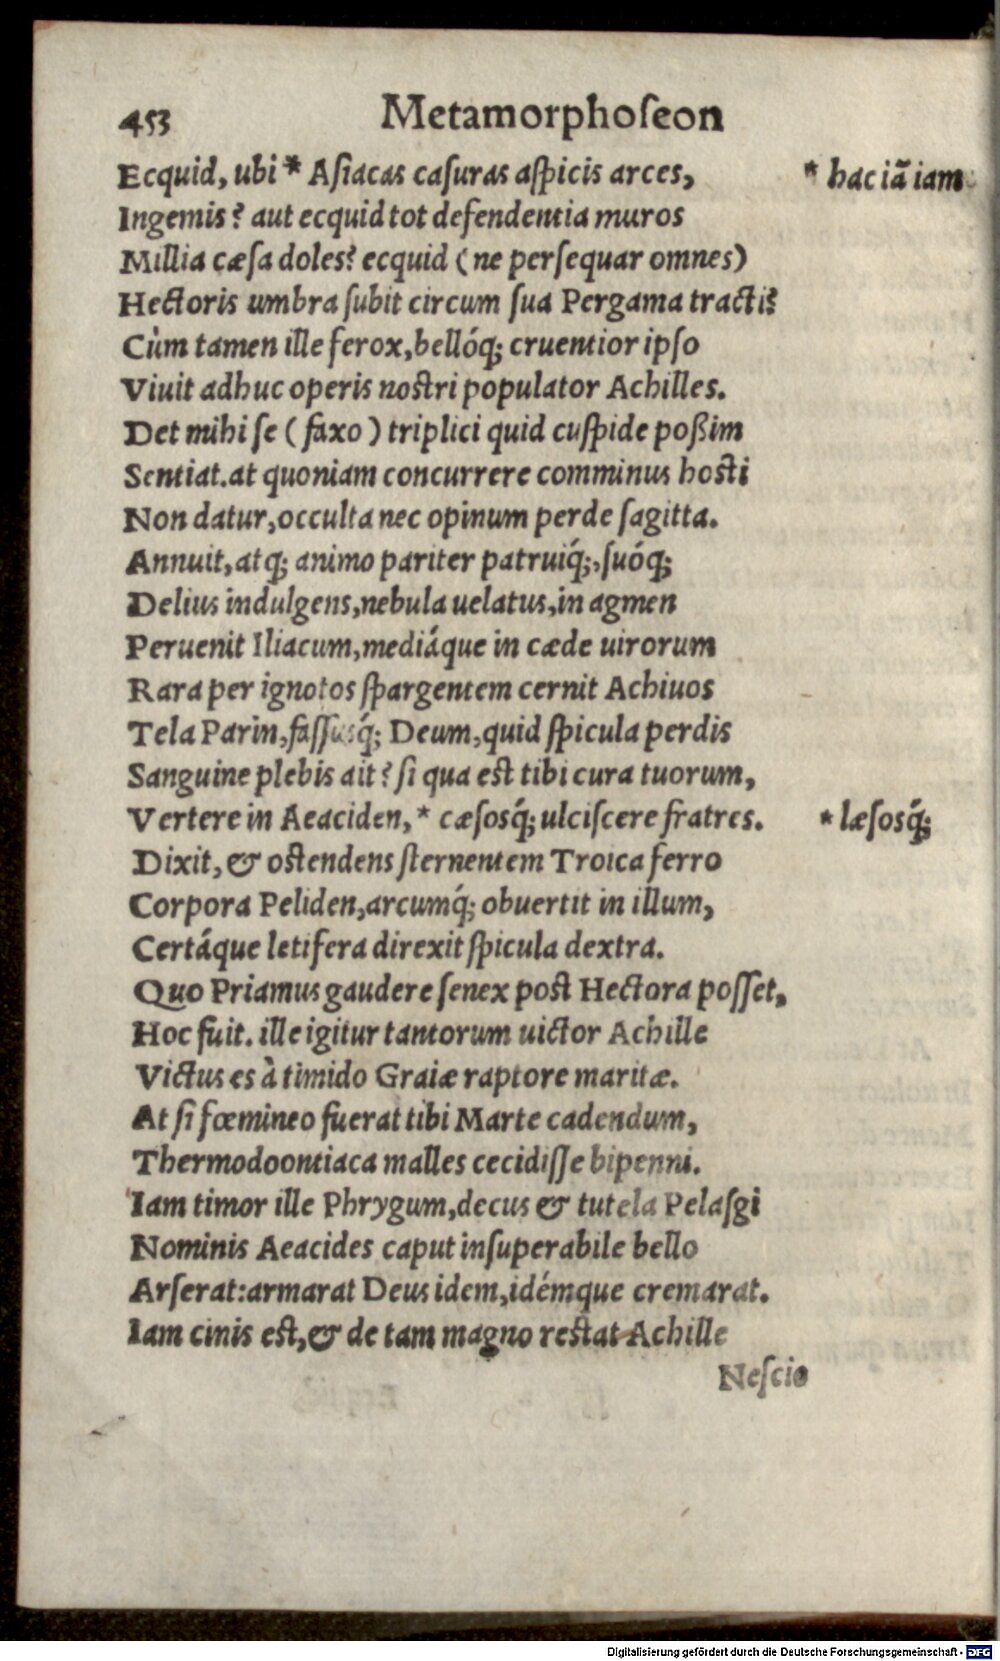 453 Metamorphoſeon
Ecquid, ubi * Aſiacas caſuras aſpicis arces, * hac iã iam
Ingemis? aut ecquid tot defendentia muros
Millia cæſa doles? ecquid (ne perſequar omnes)
Hectoris umbra ſubit circum ſua Pergama tracti?
Cùm tamen ille ferox, bellóq; cruentior ipſo
Viuit adhuc operis noſtri populator Achilles.
Det mihi ſe (faxo) triplici quid cuſpide poßim
Sentiat. at quoniam concurrere comminus hoſti
Non datur, occulta nec opinum perde ſagitta.
Annuit, atq; animo pariter patruiq́;, ſuóq;
Delius indulgens, nebula uelatus, in agmen
Peruenit Iliacum, mediáque in cæde uirorum
Rara per ignotos ſpargentem cernit Achiuos
Tela Parin, faſſusq́; Deum, quid ſpicula perdis
Sanguine plebis ait? ſi qua eſt tibi cura tuorum,
Vertere in Aeaciden, * cæſosq́; ulciſcere fratres. * læſosq́;
Dixit, & oſtendens ſternentem Troica ferro
Corpora Peliden, arcumq́; obuertit in illum,
Certáque letifera direxit ſpicula dextra.
Quo Priamus gaudere ſenex poſt Hectora poſſet,
Hoc fuit. ille igitur tantorum uictor Achille
Victus es à timido Graiæ raptore maritæ.
At ſi fœmineo fuerat tibi Marte cadendum,
Thermodoontiaca malles cecidiſſe bipenni.
Iam timor ille Phrygum, decus & tutela Pelaſgi
Nominis Aeacides caput inſuperabile bello
Arſerat: armarat Deus idem, idémque cremarat.
Iam cinis eſt, & de tam magno reſtat Achille
Neſcio
Digitalisierung gefördert durch die Deutsche Forschungsgemeinschaft - DFG